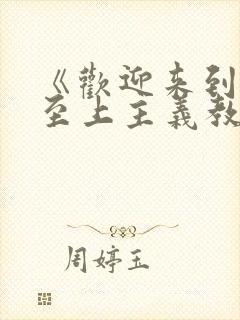 《歡迎来到
至上主義教
周婷玉